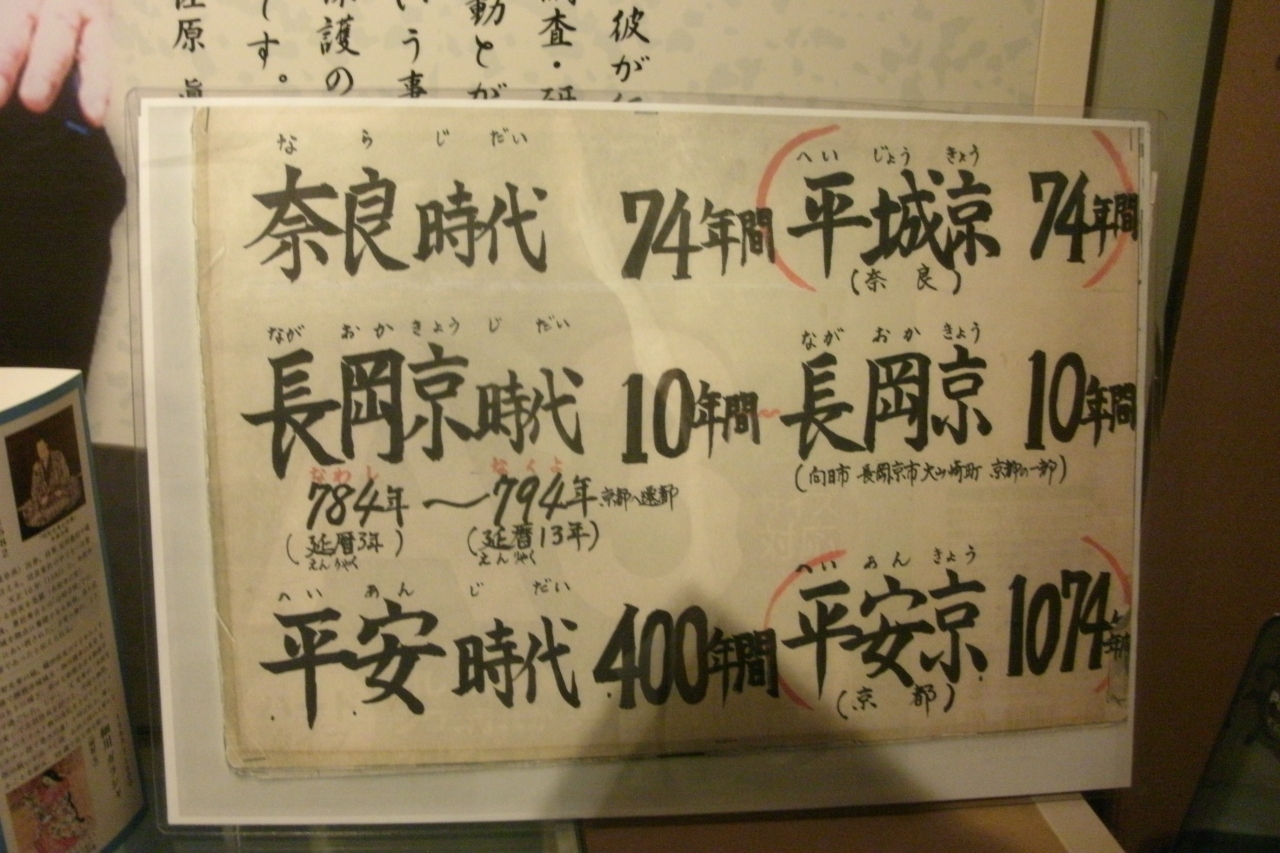 彼が
調査・研
動とが
いう事
保護の
です。
な ら じ だい
奈良時代 74年間
へい じょう きょう
平城京 74年間
(奈良)
なが おか きょう じ だい
長岡京時代 10年間~
なが おか きょう
長岡京 10年間
(向日市 長岡京市 大山崎町 京都の一部)
なわし なくよ
784年~794年京都へ遷都
(延暦3年) (延暦13年)
えんりゃく えんりゃく
へい あん じ だい
平安時代 400年間
へい あん きょう
平安京 1074年間
(京都)